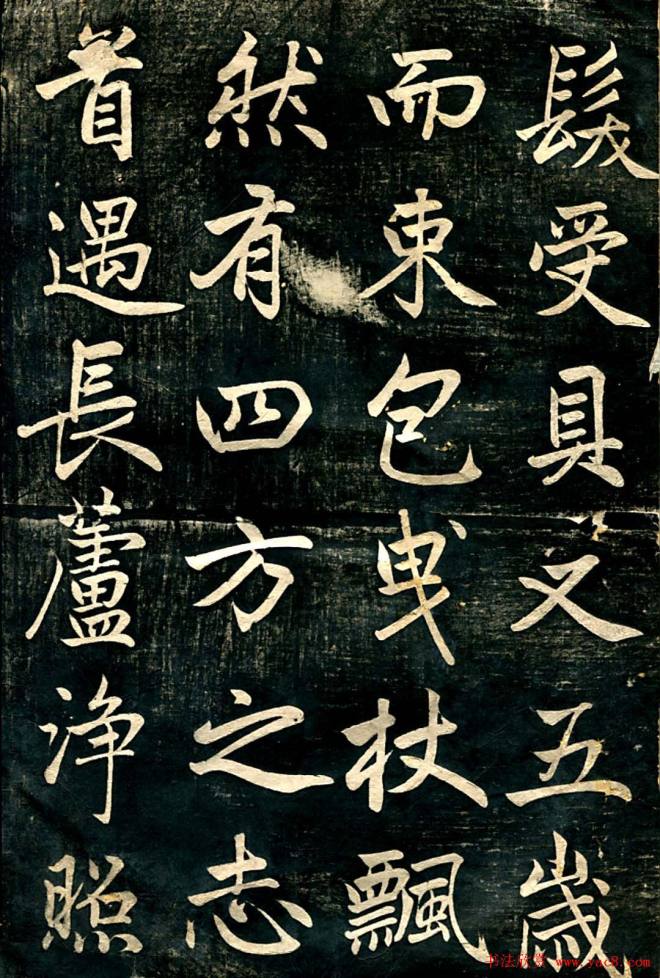 髮受具又五歲
而束包曳杖飄
然有四方之志
首遇長蘆淨照
书法欣赏 www.yac8.com